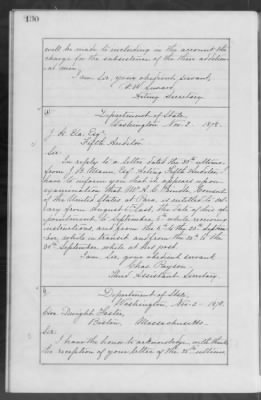 130
will be made to including in the account the
charge for the subsistence of the three addition-
al men.
I am Sir, your obedient servant,
F. W. Seward,
Acting Secretary
Department of State,
Washington Nov. 2. 1878.
J. H. Ela, Esq.
Fifth Auditor
Sir
In reply to a letter dated the 30th ultimo,
from J. B. Mann Esq. Acting Fifth Auditor I
have to inform you that it appears upon
examination that Mr. R. C. Consul
of the United States at Para, is entitled to sal-
ary from August 1st, the date of his ap-
pointment to September 6th while receiving
instructions, and from the 6th to the 20th Septem-
ber, while in transit and from the 20th to the
30th September while at his post.
I am Sir, your obedient servant
Chas. Payson,
Third Assistant Secretary.
Department of State,
Washington, Nov. 2 - 1878.
Hon. Dwight Foster,
Boston, Massachusetts.
Sir:
I have the honor to acknowledge with thanks
the reception of your letter of the 25th ultimo,